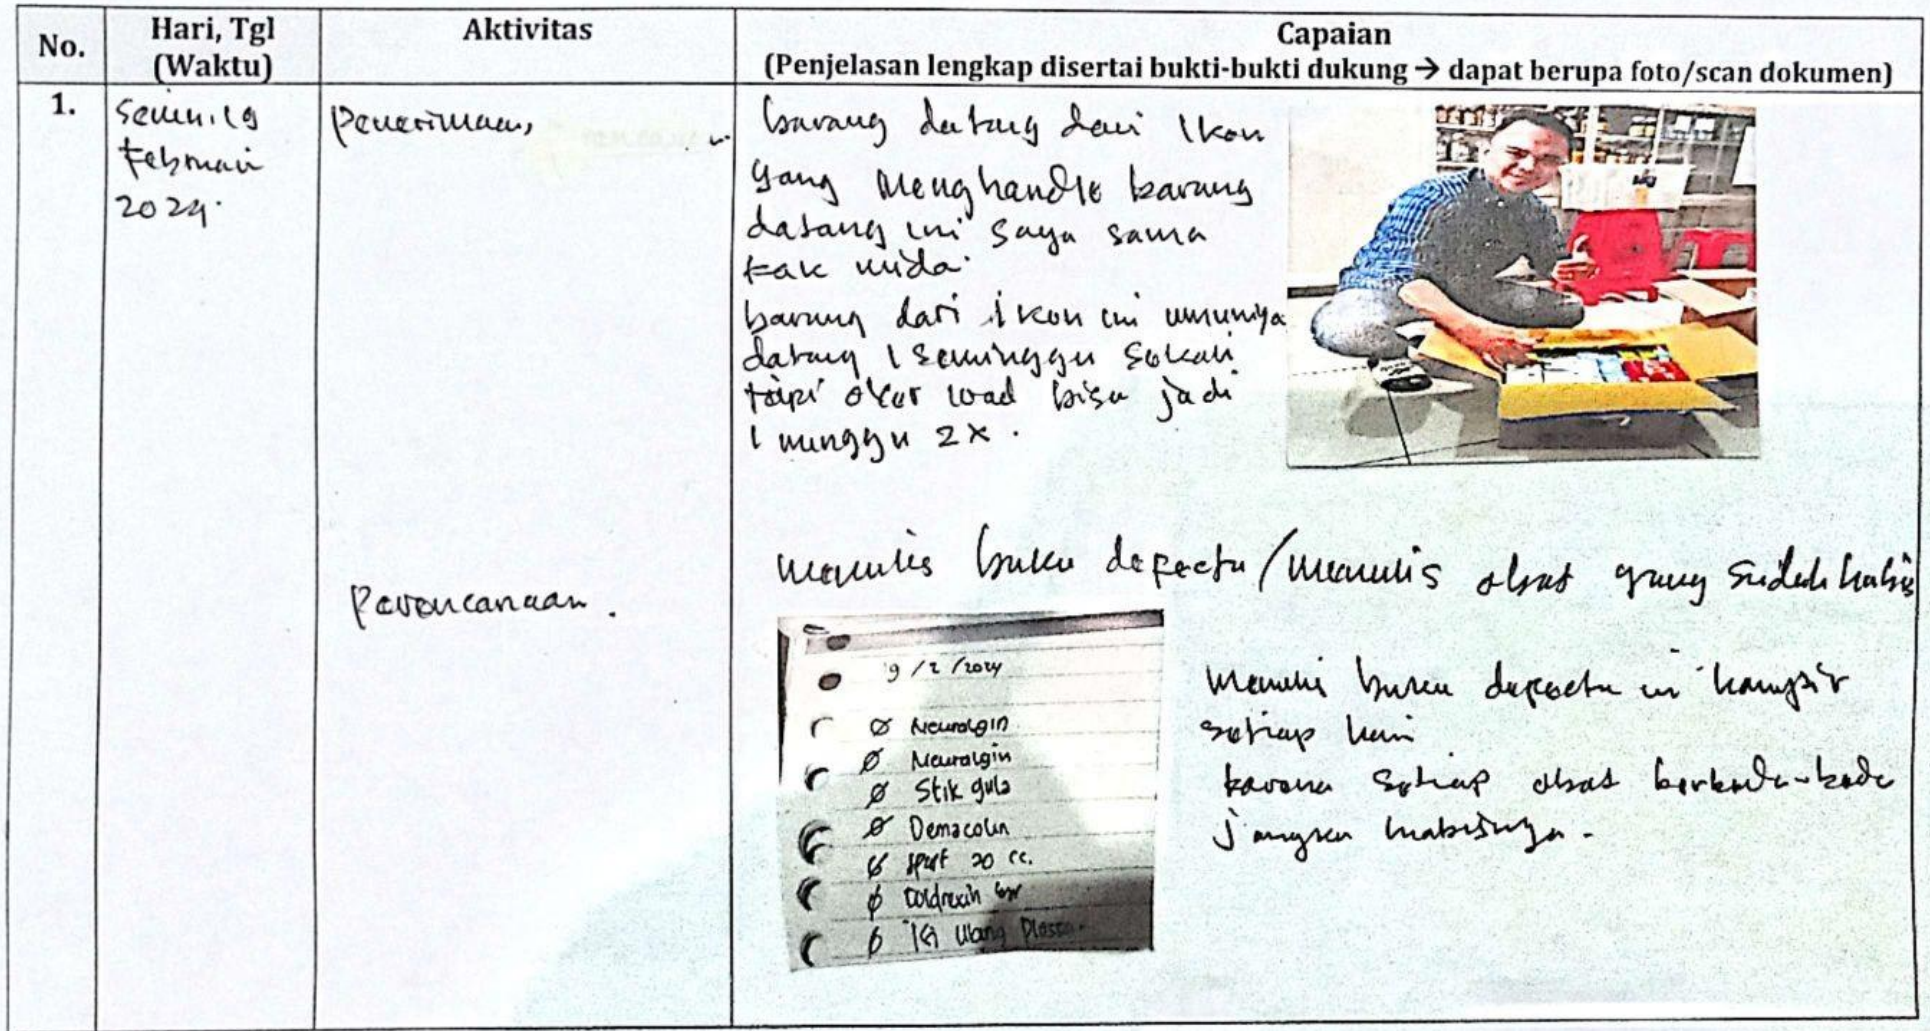 No.
Hari, Tgl
(Waktu)
Aktivitas
Capaian
(Penjelasan lengkap disertai bukti-bukti dukung → dapat berupa foto/scan dokumen)
1.
Senin, 19
Februari
2024.
Penerimaan,
barang datang dari Ikon
yang menghandle barang
datang ini saya sama
kak mida.
barang dari ikon ini umumnya
datang 1 seminggu sekali
tapi over load bisa jadi
1 minggu 2x.
Perencanaan.
menulis buku defecta/menulis obat yang sudah habis
9/2/2024
Ø Neuralgin
Ø Neuralgin
Ø Stik gula
Ø Demacolin
20 cc.
Ø Coldrexin
Ø Isi Ulang
menulis buku defecta ini hampir
setiap hari
karena setiap obat berbeda-beda
jangka habisnya.